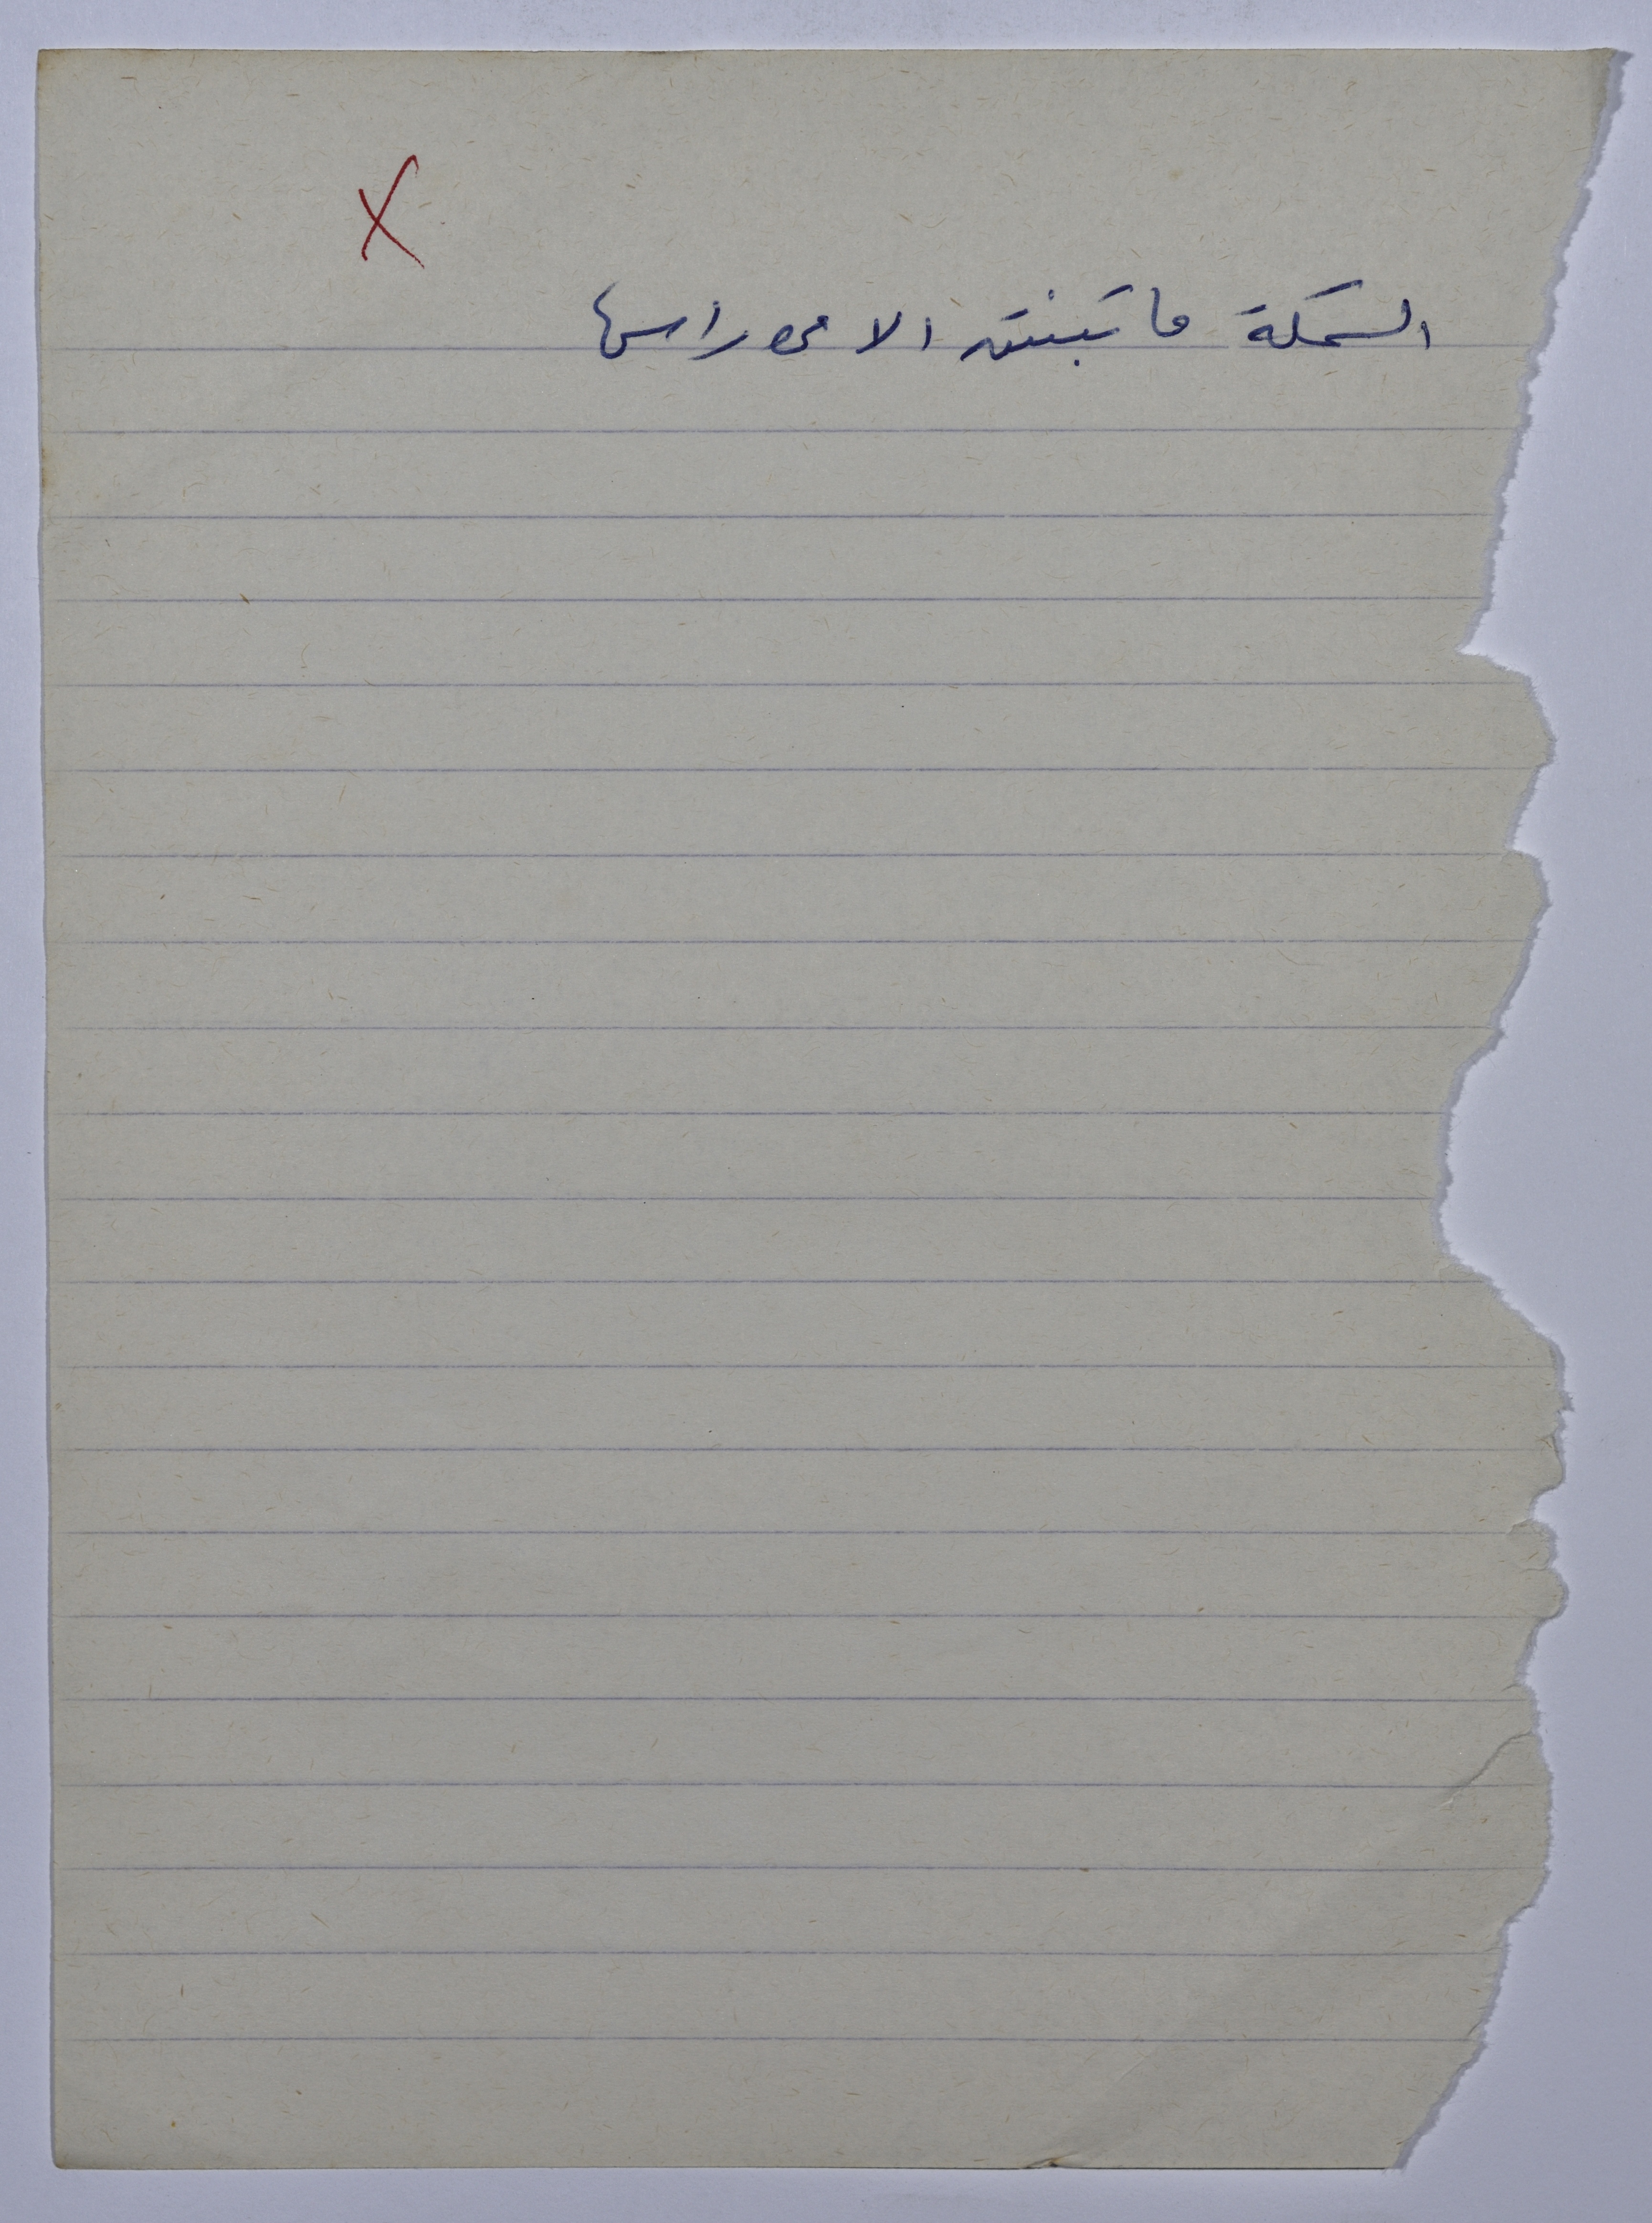 X
السمكة ما تبنتن الا من راسها